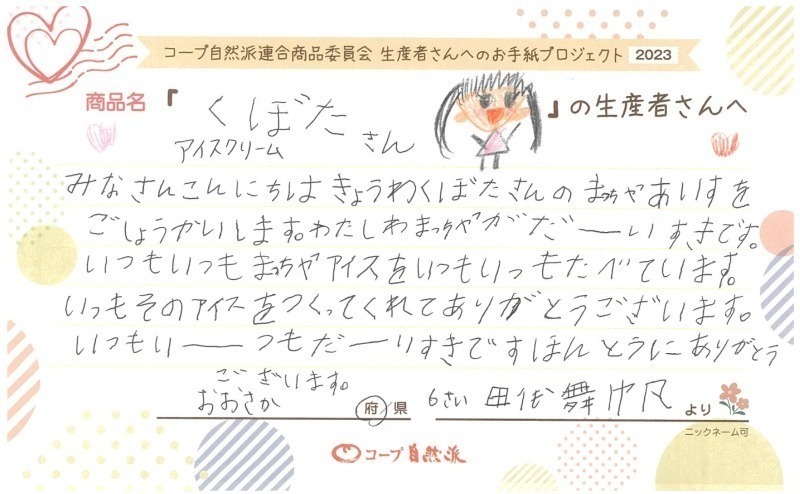 コープ自然派連合商品委員会 生産者さんへのお手紙プロジェクト 2023
商品名『くぼた
アイスクリーム さん
』の生産者さんへ
みなさんこんにちは きょうわくぼたさんの まっちゃあいすを
ごしょうかいします。わたしわまっちゃがだーいすきです。
いつもいつもまっちゃアイスをいつもいつもたべています。
いつもそのアイスをつくってくれてありがとうございます。
いつもいーつもだーいすきです ほんとうにありがとう
ございます。
おおさか 府 県 6さい 田 舞 より
ニックネーム可
コープ自然派